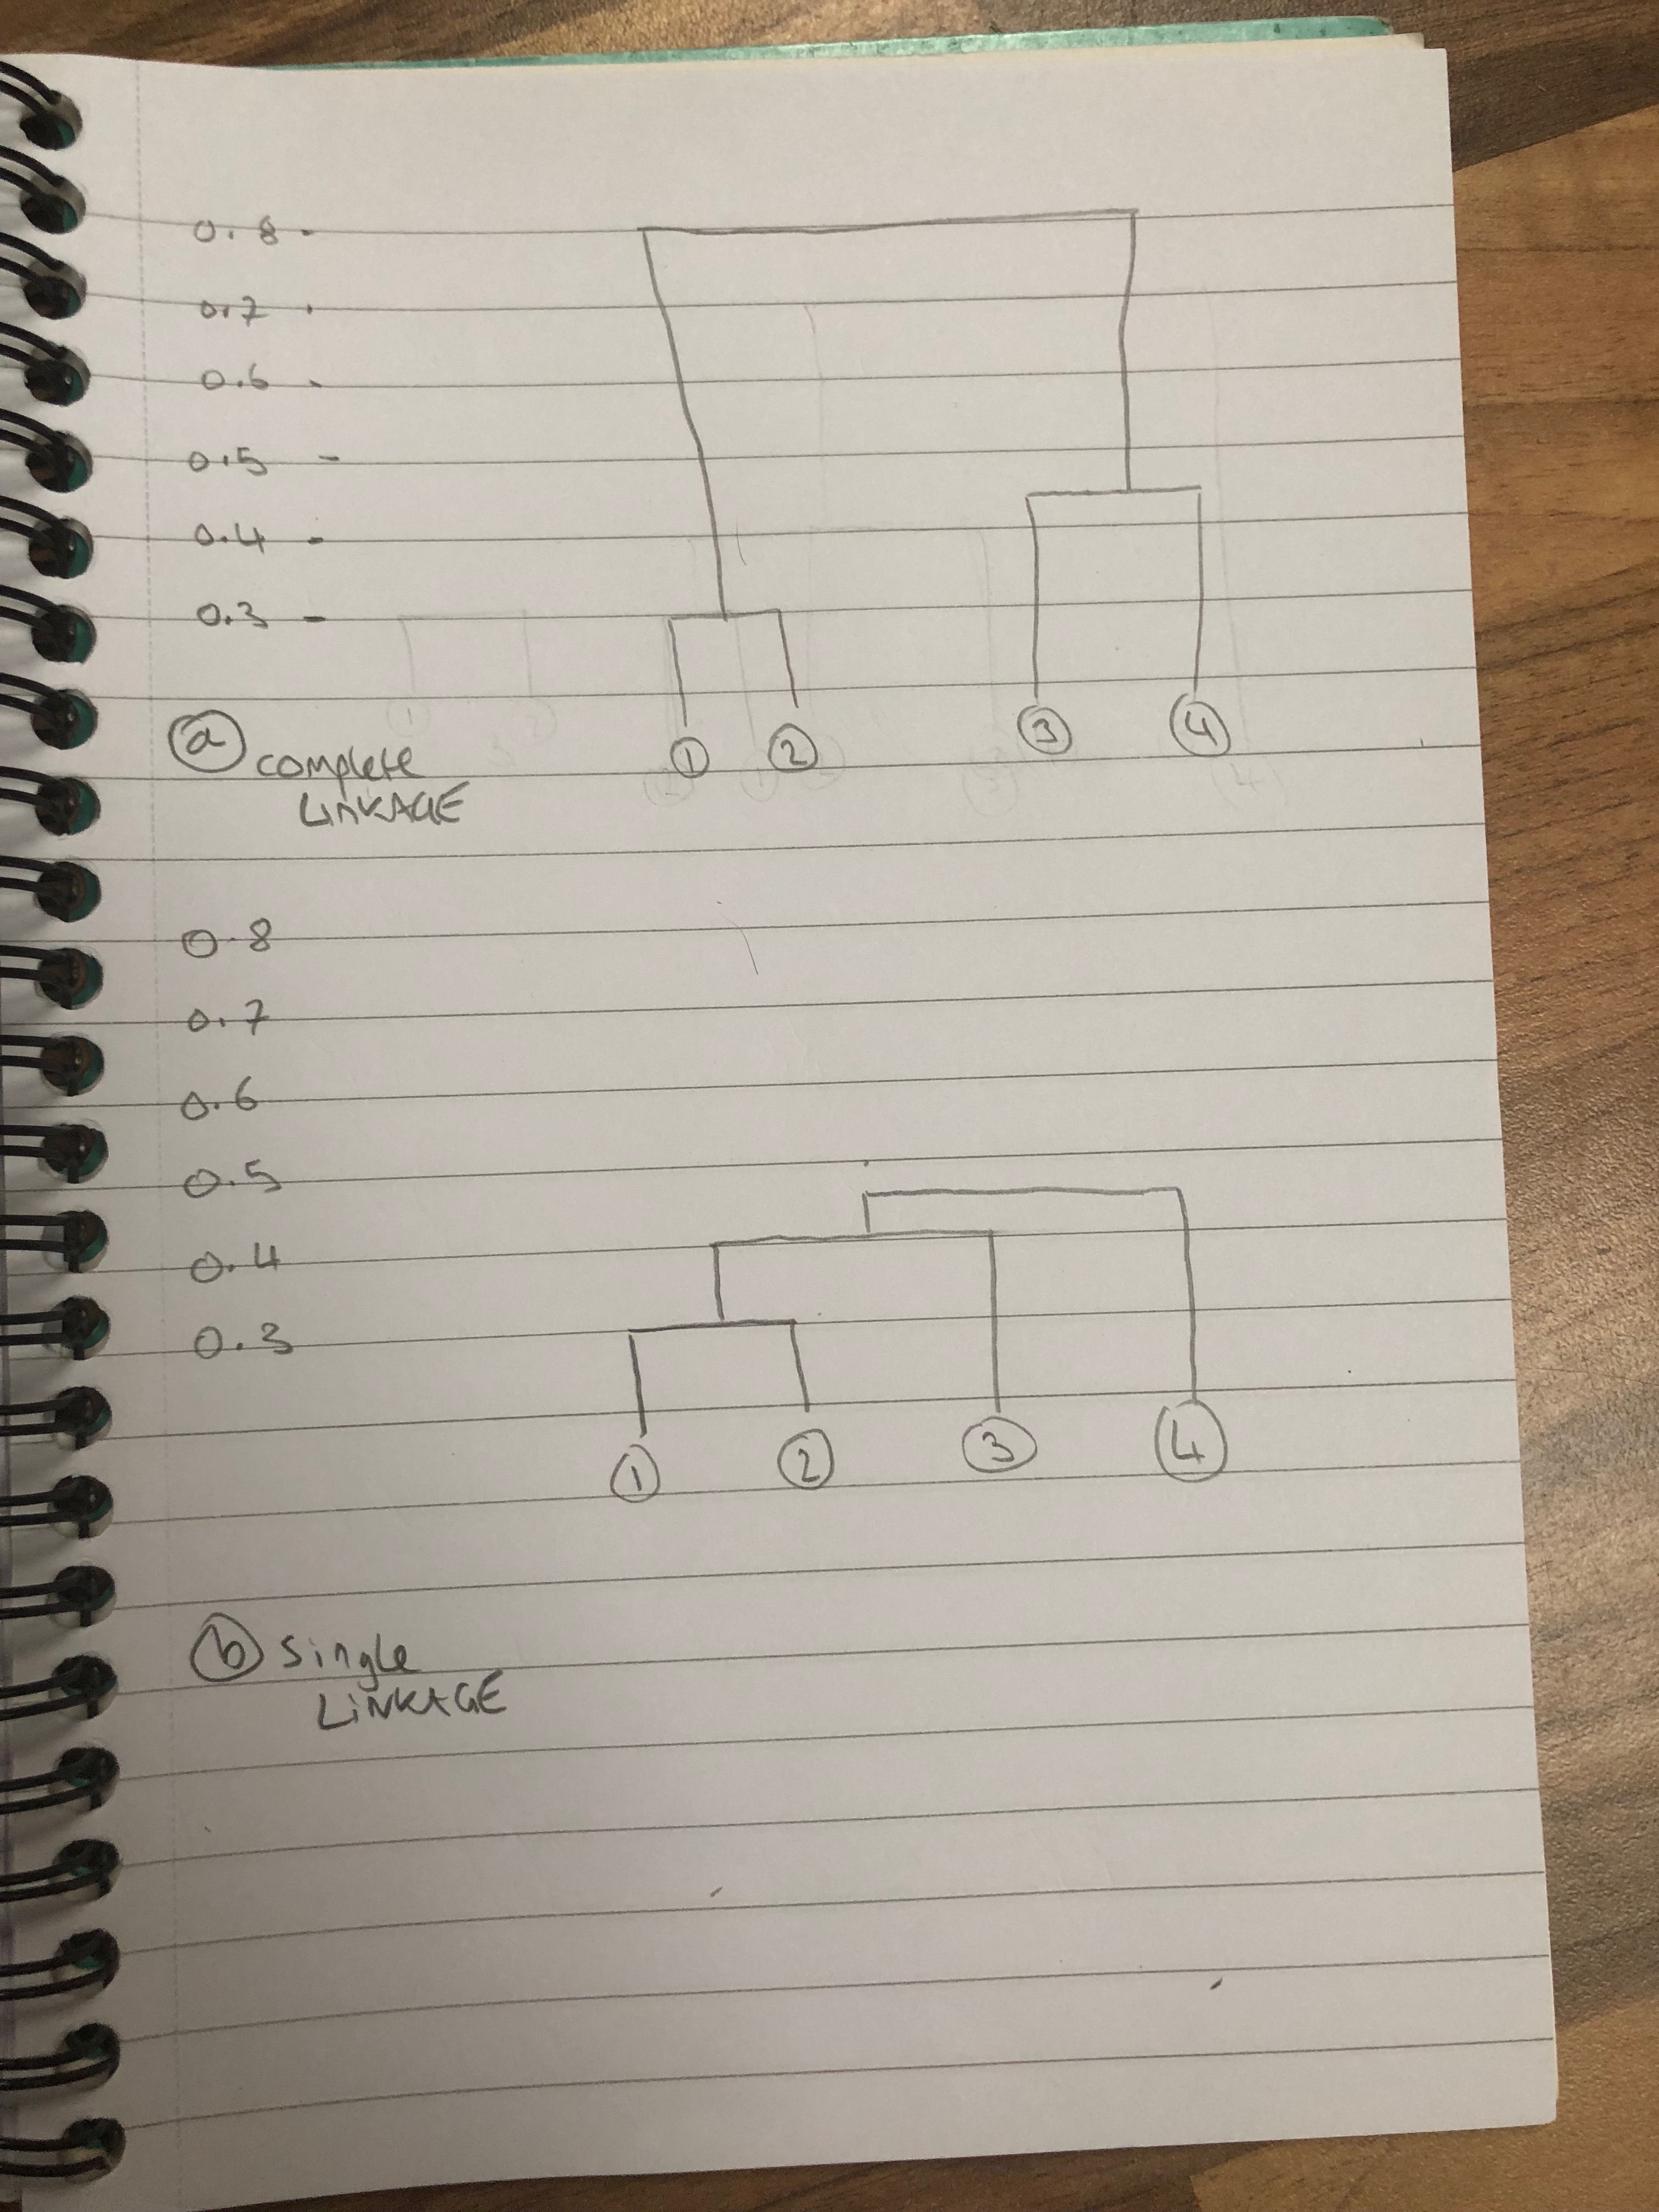 0.8
0.7
0.6
0.5
0.4
0.3
① ② ③ ④
ⓐ complete
LINKAGE
0.8
0.7
0.6
0.5
0.4
0.3
① ② ③ ④
ⓑ single
LINKAGE